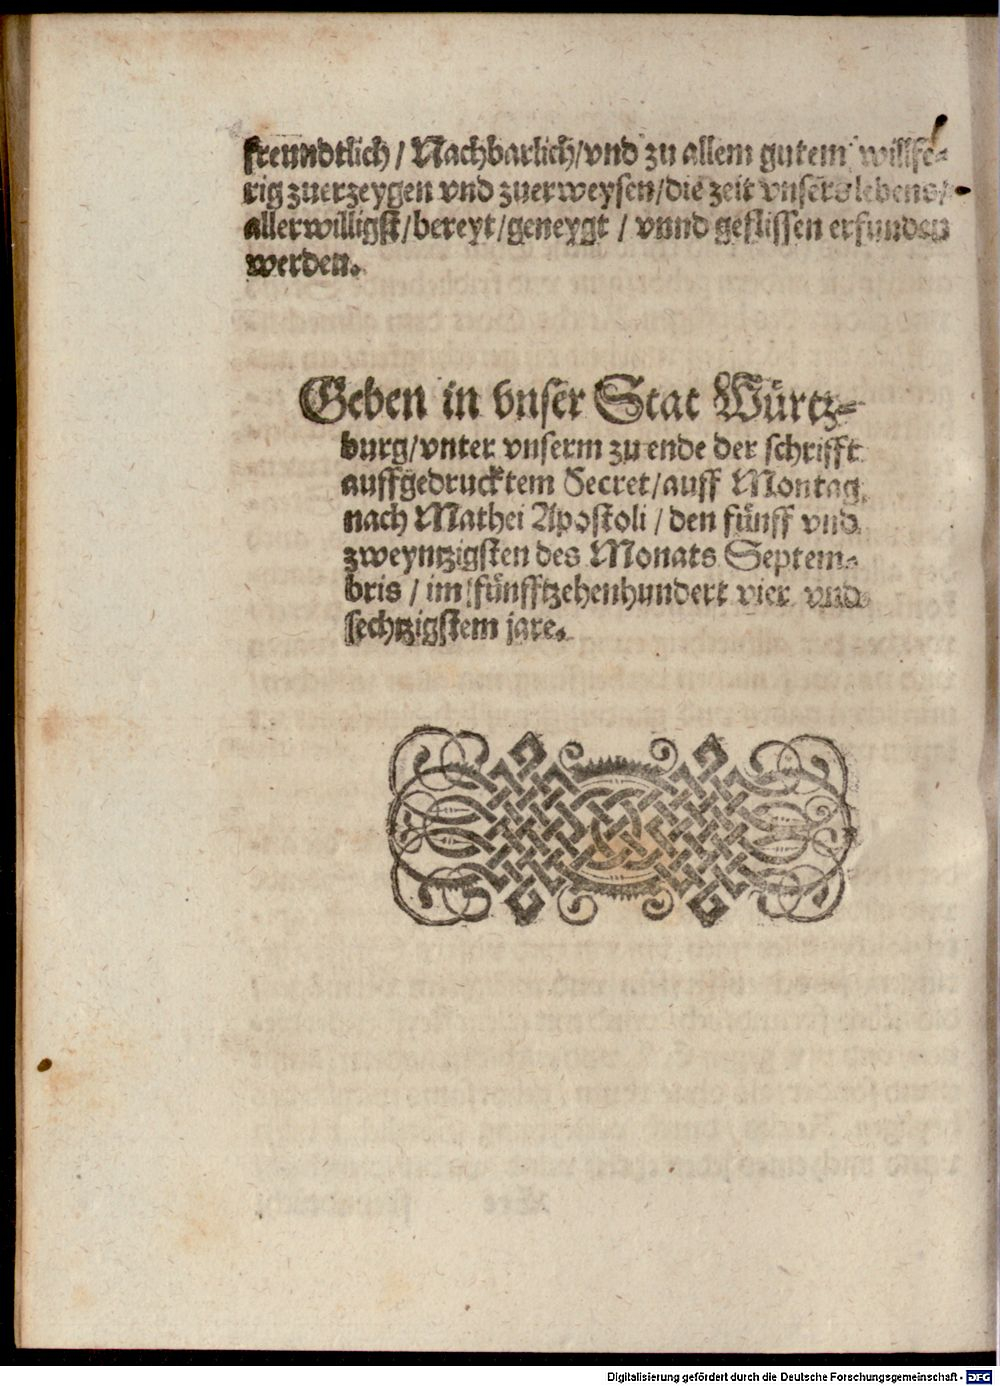 freundtlich / Nachbarlich/vnd zu allem gutem willfe-
rig zuerzeygen vnd zuerweysen/die zeit vnsers lebens/
allerwilligst/bereyt/geneygt / vnnd geflissen erfunden
werden.
Geben in vnser Stat Würtz-
burg/vnter vnserm zu ende der schrifft
auffgedrucktem Secret/auff Montag
nach Mathei Apostoli / den fünff vnd
zweyntzigsten des Monats Septem-
bris / im fünfftzehenhundert vier vnd
sechtzigstem jare.
Digitalisierung gefördert durch die Deutsche Forschungsgemeinschaft - DFG